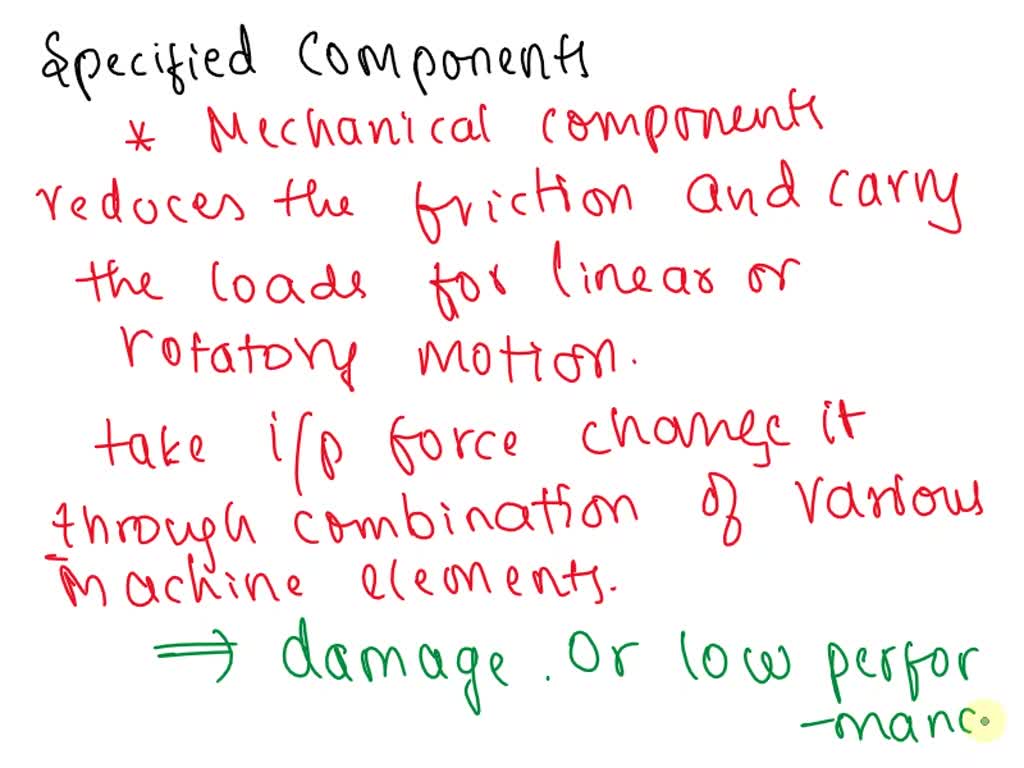 Specified Components
* Mechanical components
reduces the friction and carry
the loads for linear or
rotatory motion.
take i/p force change it
through combination of various
machine elements.
⇒ damage. Or low perfor
-manc